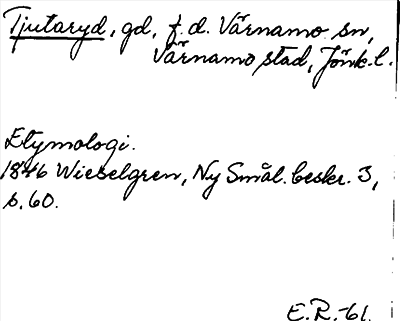 Tjutaryd, gd, f.d. Värnamo sn,
Värnamo stad, Jönk.l.
Etymologi.
1846 Wieselgren, Ny Smål. beskr. 3,
s.60.
E.R.-61.